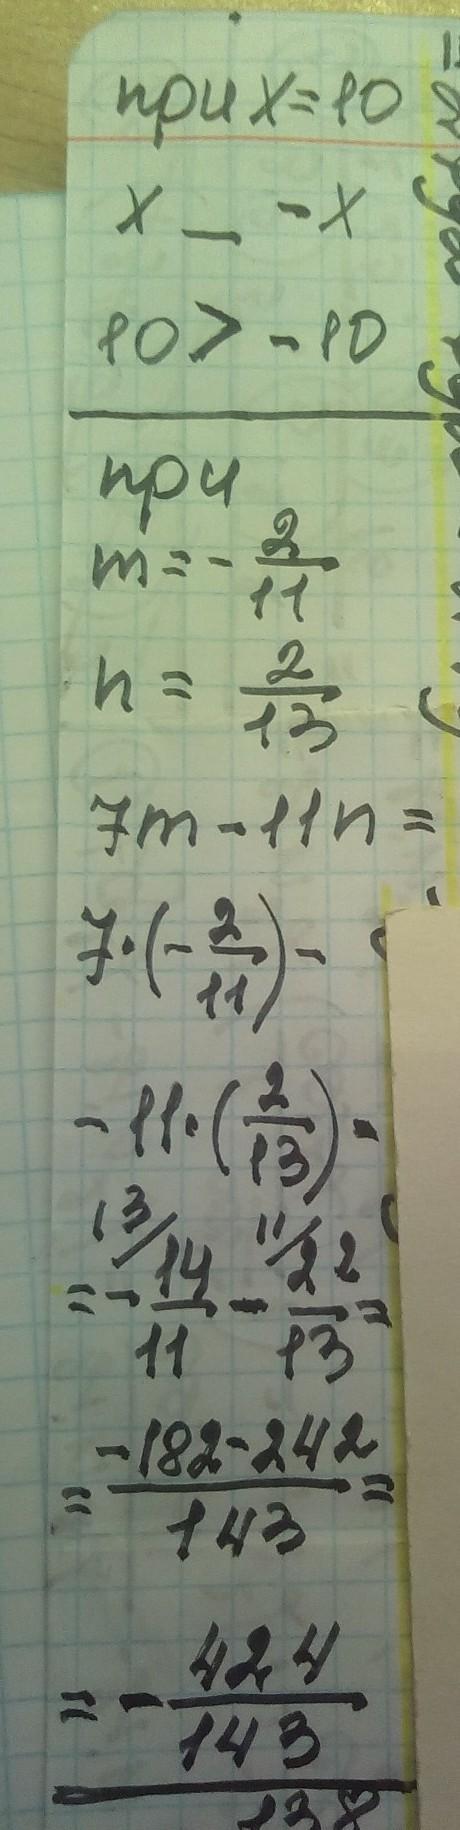 при x=10
x _ -x
10 > -10
при
m = - 2/11
n = 2/13
7m - 11n =
7·(- 2/11) -
- 11·(2/13) -
= - 13/ 14/11 - 11/ 22/13 =
= -182-242/143 =
= - 424/143
138